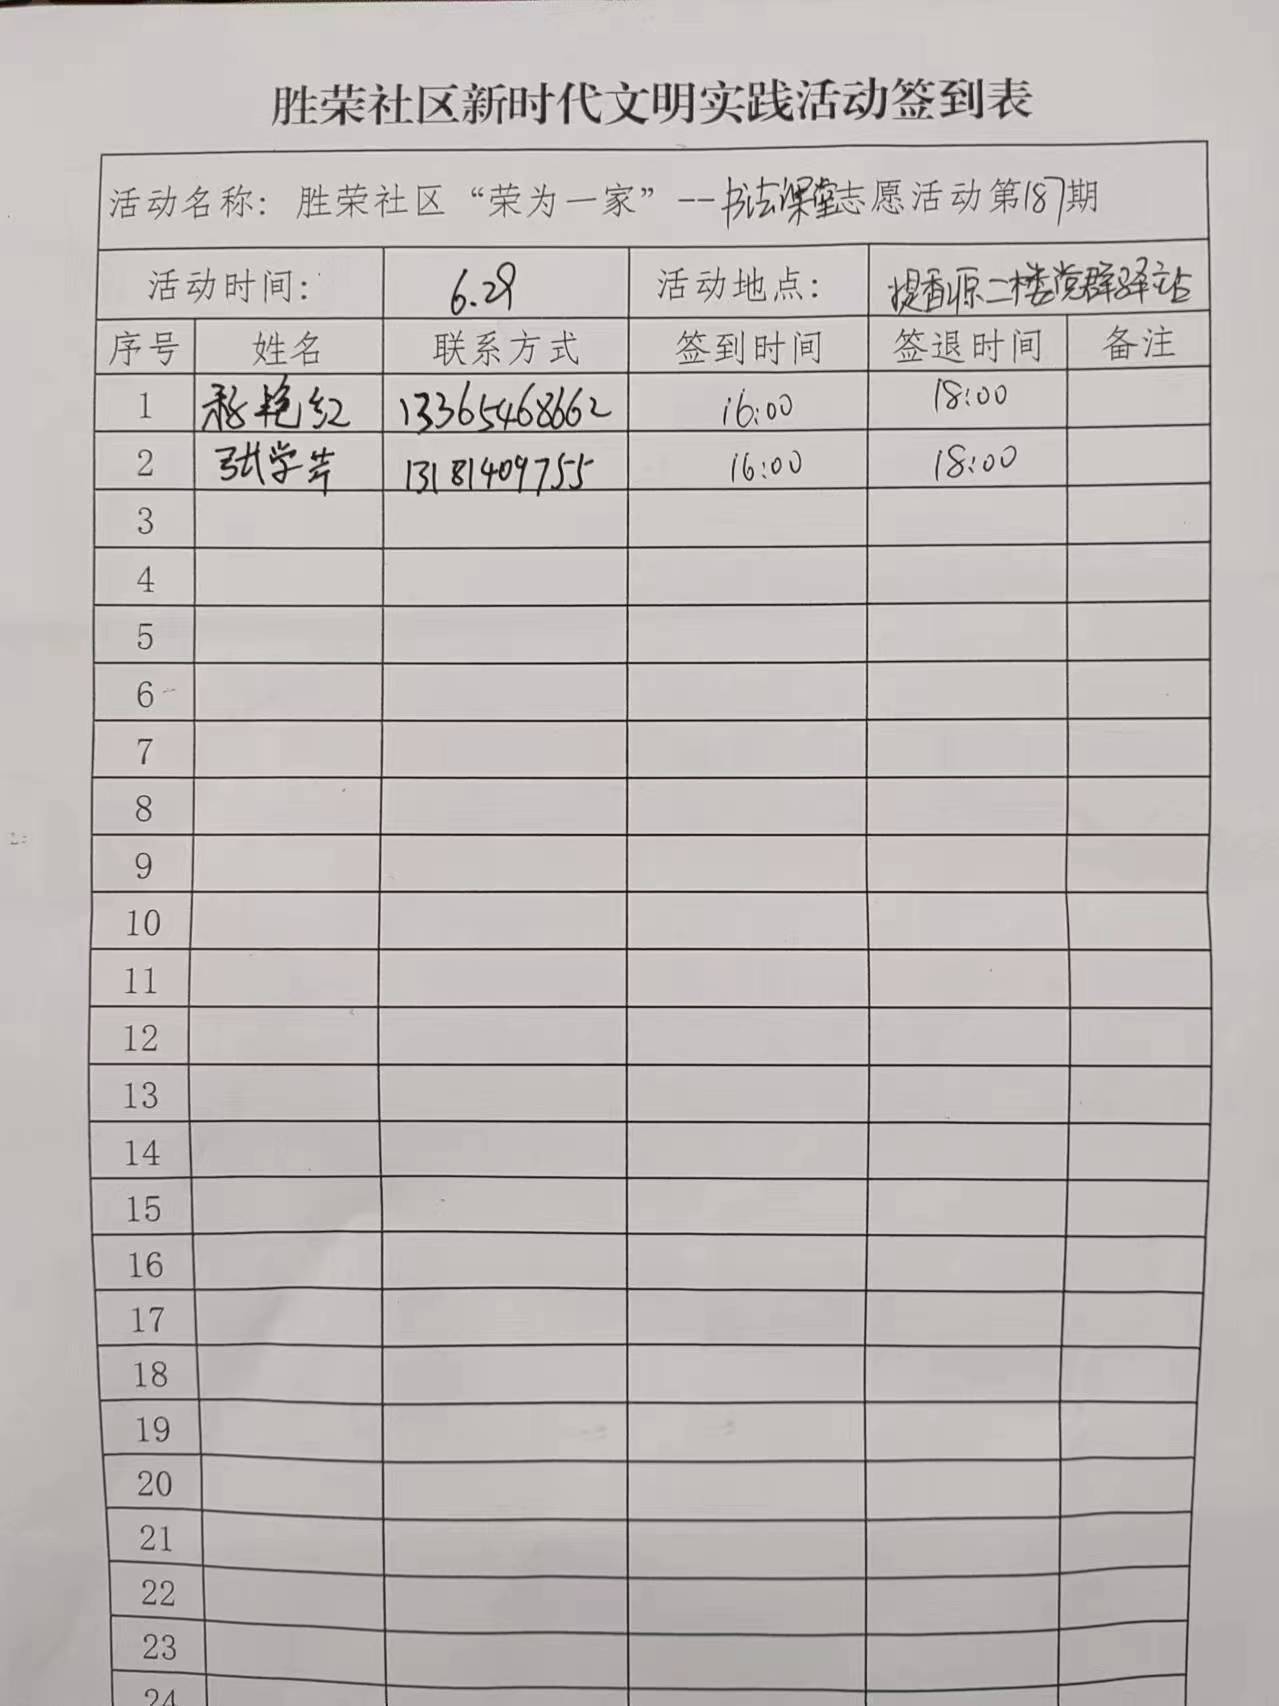 胜荣社区新时代文明实践活动签到表
活动名称：胜荣社区“荣为一家”--书法课堂志愿活动第187期
活动时间： 6.29 活动地点： 提香源二楼党群驿站
序号 姓名 联系方式 签到时间 签退时间 备注
1 艳红 13365468662 16:00 18:00
2 张学芹 13181409755 16:00 18:00
3
4
5
6
7
8
9
10
11
12
13
14
15
16
17
18
19
20
21
22
23
24